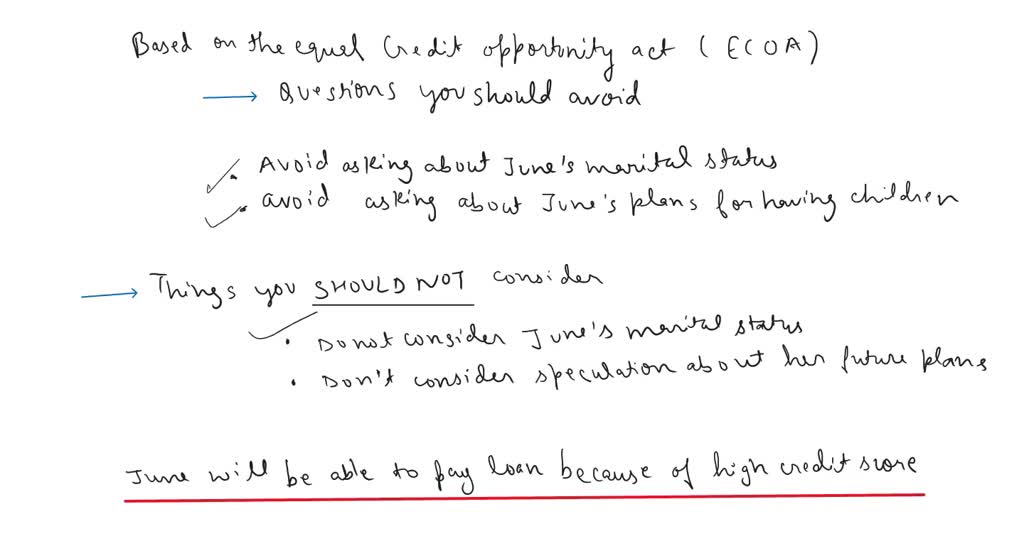 Based on the equal Credit opportunity act (ECOA)
→ Questions you should avoid
• Avoid asking about June's marital status
• avoid asking about June's plans for having children
→ Things you SHOULD NOT consider
• Do not consider June's marital status
• Don't consider speculation about her future plans
June will be able to pay loan because of high credit score